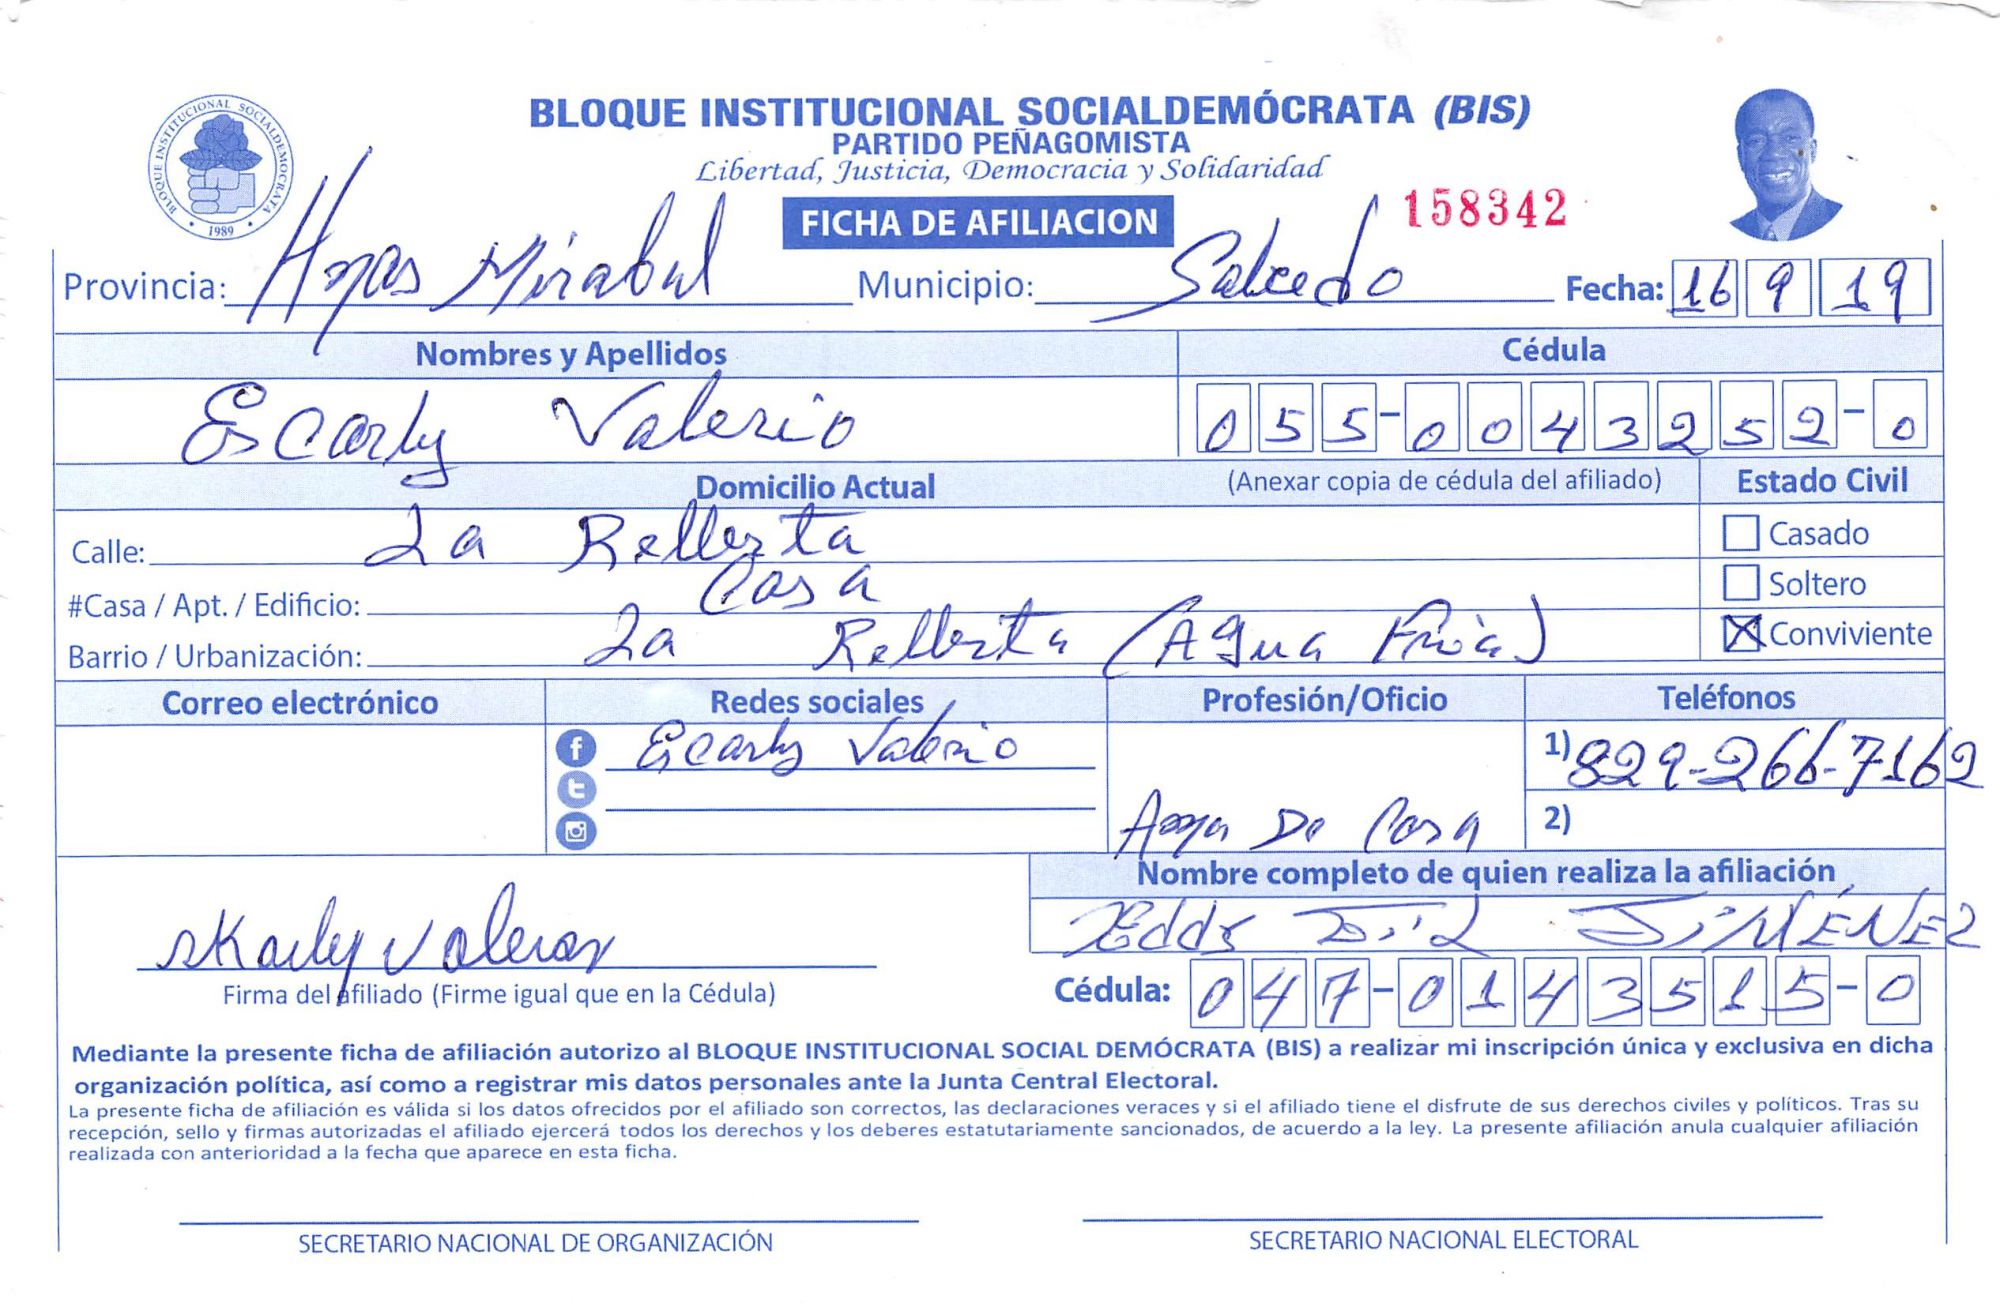 BLOQUE INSTITUCIONAL SOCIALDEMÓCRATA (BIS)
PARTIDO PEÑAGOMISTA
Libertad, Justicia, Democracia y Solidaridad
BLOQUE INSTITUCIONAL SOCIALDEMOCRATA
1989
FICHA DE AFILIACION
158342
Provincia: Mirabal Municipio: Salcedo Fecha: 16 9 19
Nombres y Apellidos Cédula
Escarly Valerio 055-0043252-0
Domicilio Actual (Anexar copia de cédula del afiliado) Estado Civil
Calle: La Casado
#Casa / Apt. / Edificio: Casa Soltero
Barrio / Urbanización: La (Agua Fria) Conviviente
Correo electrónico Redes sociales Profesión/Oficio Teléfonos
Escarly Valerio 1) 829-266-7162
Ama De Casa 2)
Nombre completo de quien realiza la afiliación
Eddy JiMÉNEZ
Firma del afiliado (Firme igual que en la Cédula) Cédula: 047-0143515-0
Mediante la presente ficha de afiliación autorizo al BLOQUE INSTITUCIONAL SOCIAL DEMÓCRATA (BIS) a realizar mi inscripción única y exclusiva en dicha
organización política, así como a registrar mis datos personales ante la Junta Central Electoral.
La presente ficha de afiliación es válida si los datos ofrecidos por el afiliado son correctos, las declaraciones veraces y si el afiliado tiene el disfrute de sus derechos civiles y políticos. Tras su
recepción, sello y firmas autorizadas el afiliado ejercerá todos los derechos y los deberes estatutariamente sancionados, de acuerdo a la ley. La presente afiliación anula cualquier afiliación
realizada con anterioridad a la fecha que aparece en esta ficha.
SECRETARIO NACIONAL DE ORGANIZACIÓN SECRETARIO NACIONAL ELECTORAL